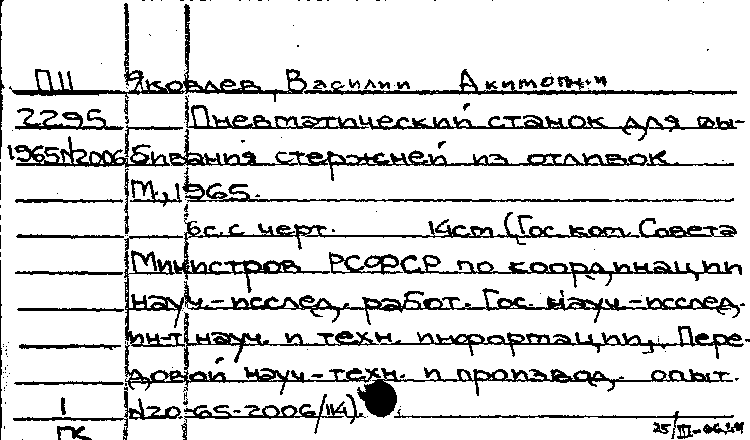 ПII Яковлев, Василий Акимович
2295 Пневматический станок для вы-
1965N2006 бивания стержней из отливок.
М., 1965.
6с. с черт. 14cm (Гос. ком. Совета
Министров РСФСР по координации
науч.-исслед. работ. Гос. науч-исслед.
ин-т науч. и техн. информации. Пере-
довой науч-техн. и производ. опыт.
1 N20-65-2006/114).
ГК